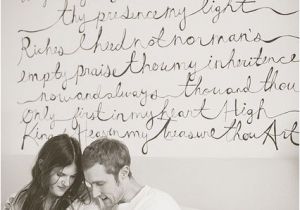 thy presence my light
Riches I heed not norman's
empty praise thou my inheritence
now and always thou and thou
Only first in my heart High
King of Heaven my treasure thou Art